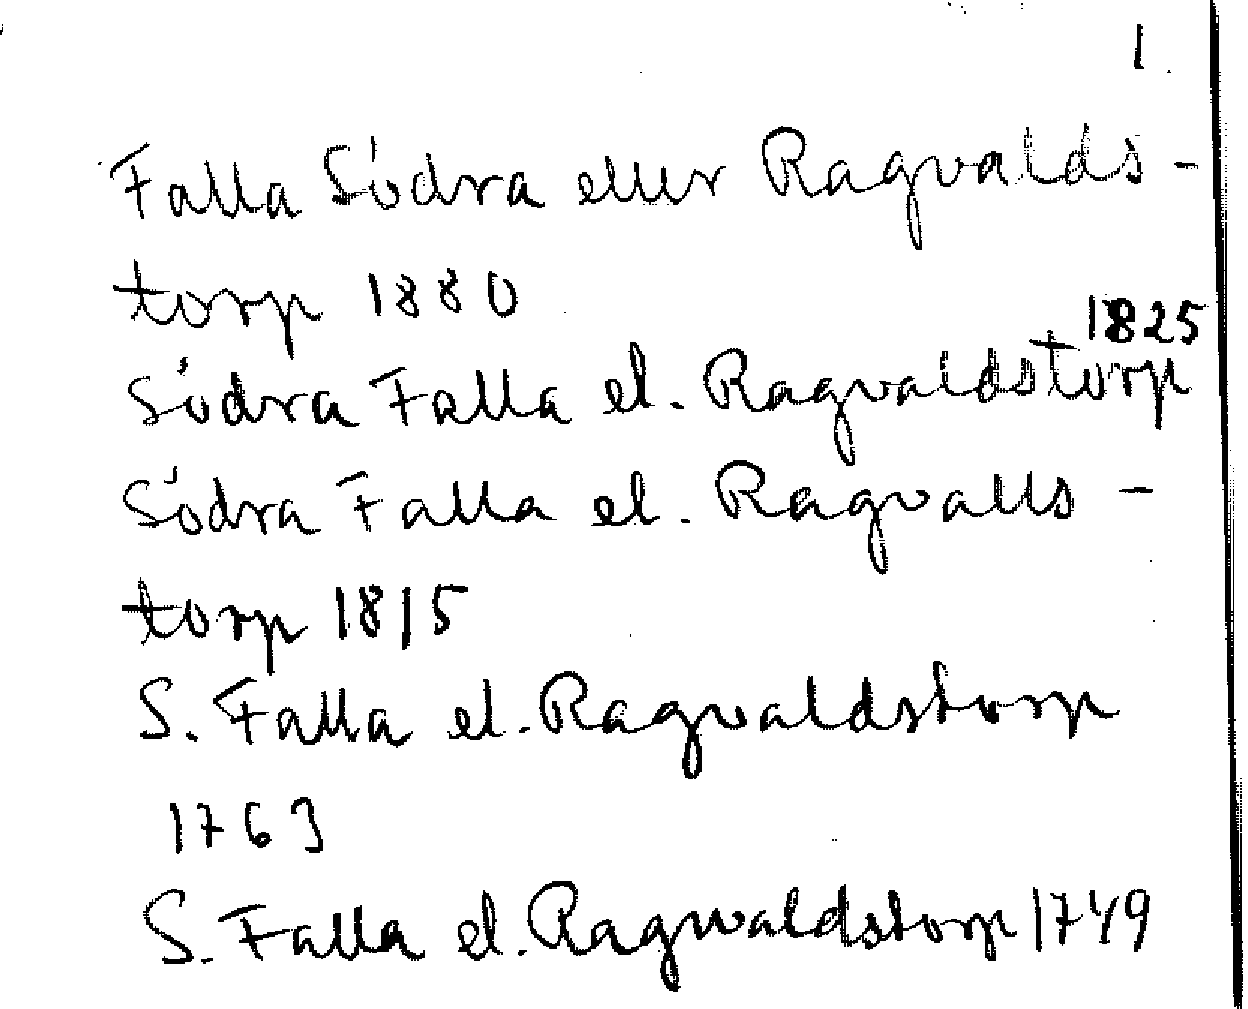 1.
Falla Södra eller Ragvalds-
torp 1880
1825
Södra Falla el. Ragvaldstorp
Södra Falla el. Ragvalls-
torp 1815
S. Falla el. Ragvaldstorp
1763
S. Falla el. Ragwaldstorp 1749